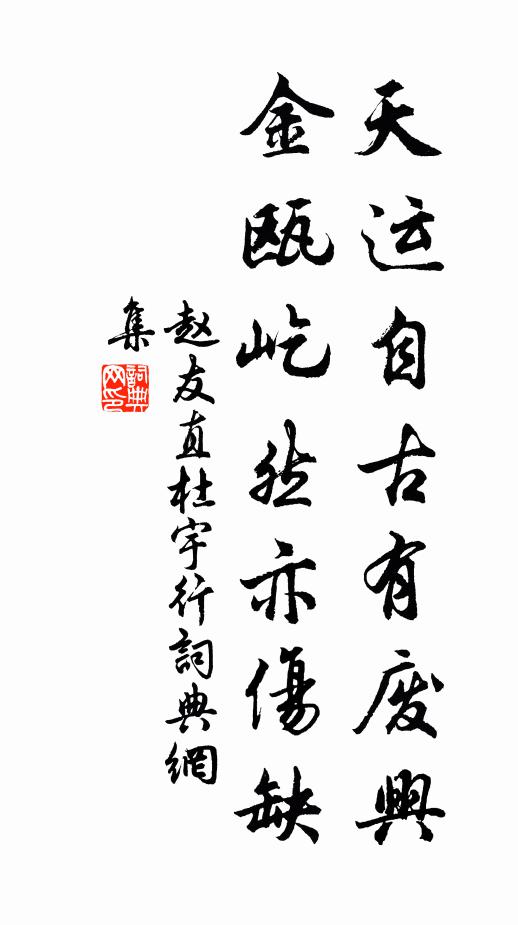 天运自古有废興
金瓯屹然亦傷缺
赵友直杜宇行詞典網
集
詞典
网印